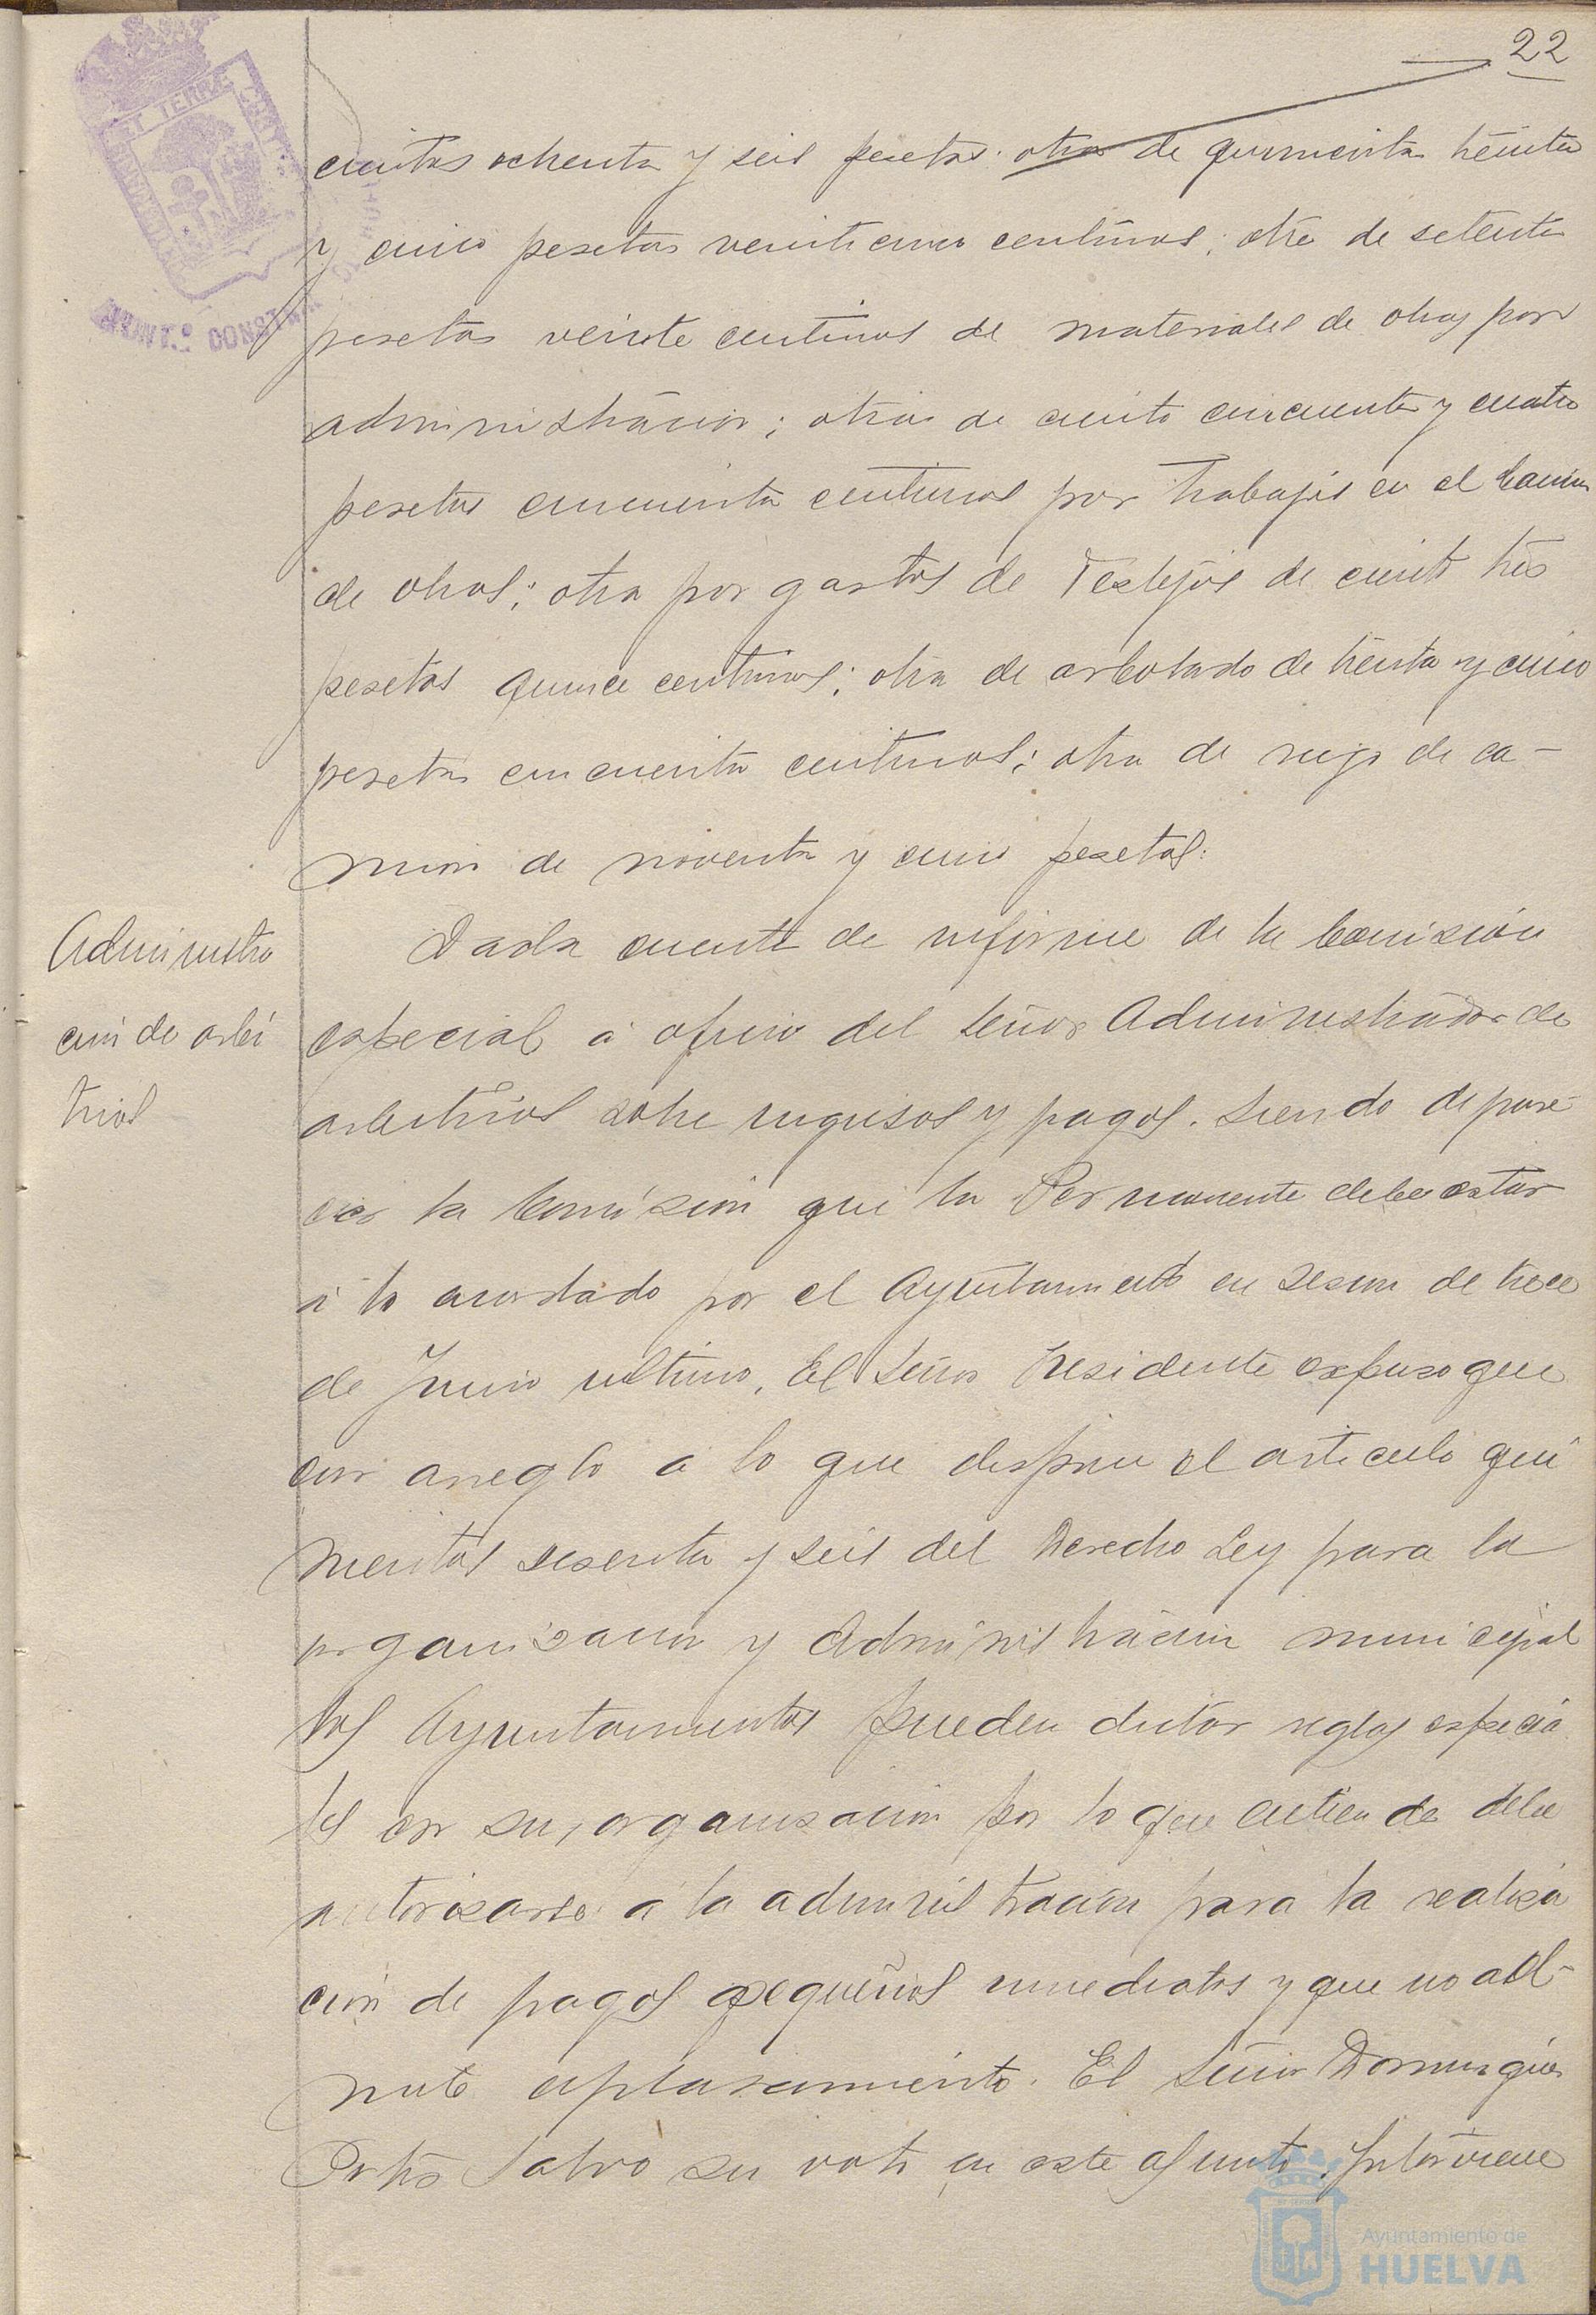 22
cientas ochenta y seis pesetas; otra de quinientas treinta
y cinco pesetas veinticinco centimos; otra de setenta
pesetas veinte centimos de materiales de obras por
administracion; otra de ciento cincuenta y cuatro
pesetas cincuenta centimos por trabajos en el Camino
de obras; otra por gastos de Festejos de ciento tres
pesetas quince centimos; otra de arbolado de treinta y cinco
pesetas cincuenta centimos; otra de riego de ca-
mion de noventa y cinco pesetas.
Administra
cion de arbi
trios
Dada cuenta de informe de la Comision
especial a oficio del Señor Administrador de
arbitrios sobre ingresos y pagos. Siendo de pare-
cer la Comision que la Permanente debe estar
a lo acordado por el Ayuntamiento en sesion de trece
de Junio ultimo, El Señor Presidente expuso que
con arreglo a lo que dispone el articulo qui
nientos sesenta y seis del Derecho Ley para la
organizacion y Administracion municipal
los Ayuntamientos pueden dictar reglas especia
les en su organizacion por lo que entiende debe
autorizarse a la administracion para la realiza
cion de pagos pequeños inmediatos y que no ad-
mite aplazamiento. El Señor Dominguez
Ortiz salvó su voto en este asunto. Interviene
AYUNTº CONSTITUCIONAL
ET TERRAE
Ayuntamiento de
HUELVA